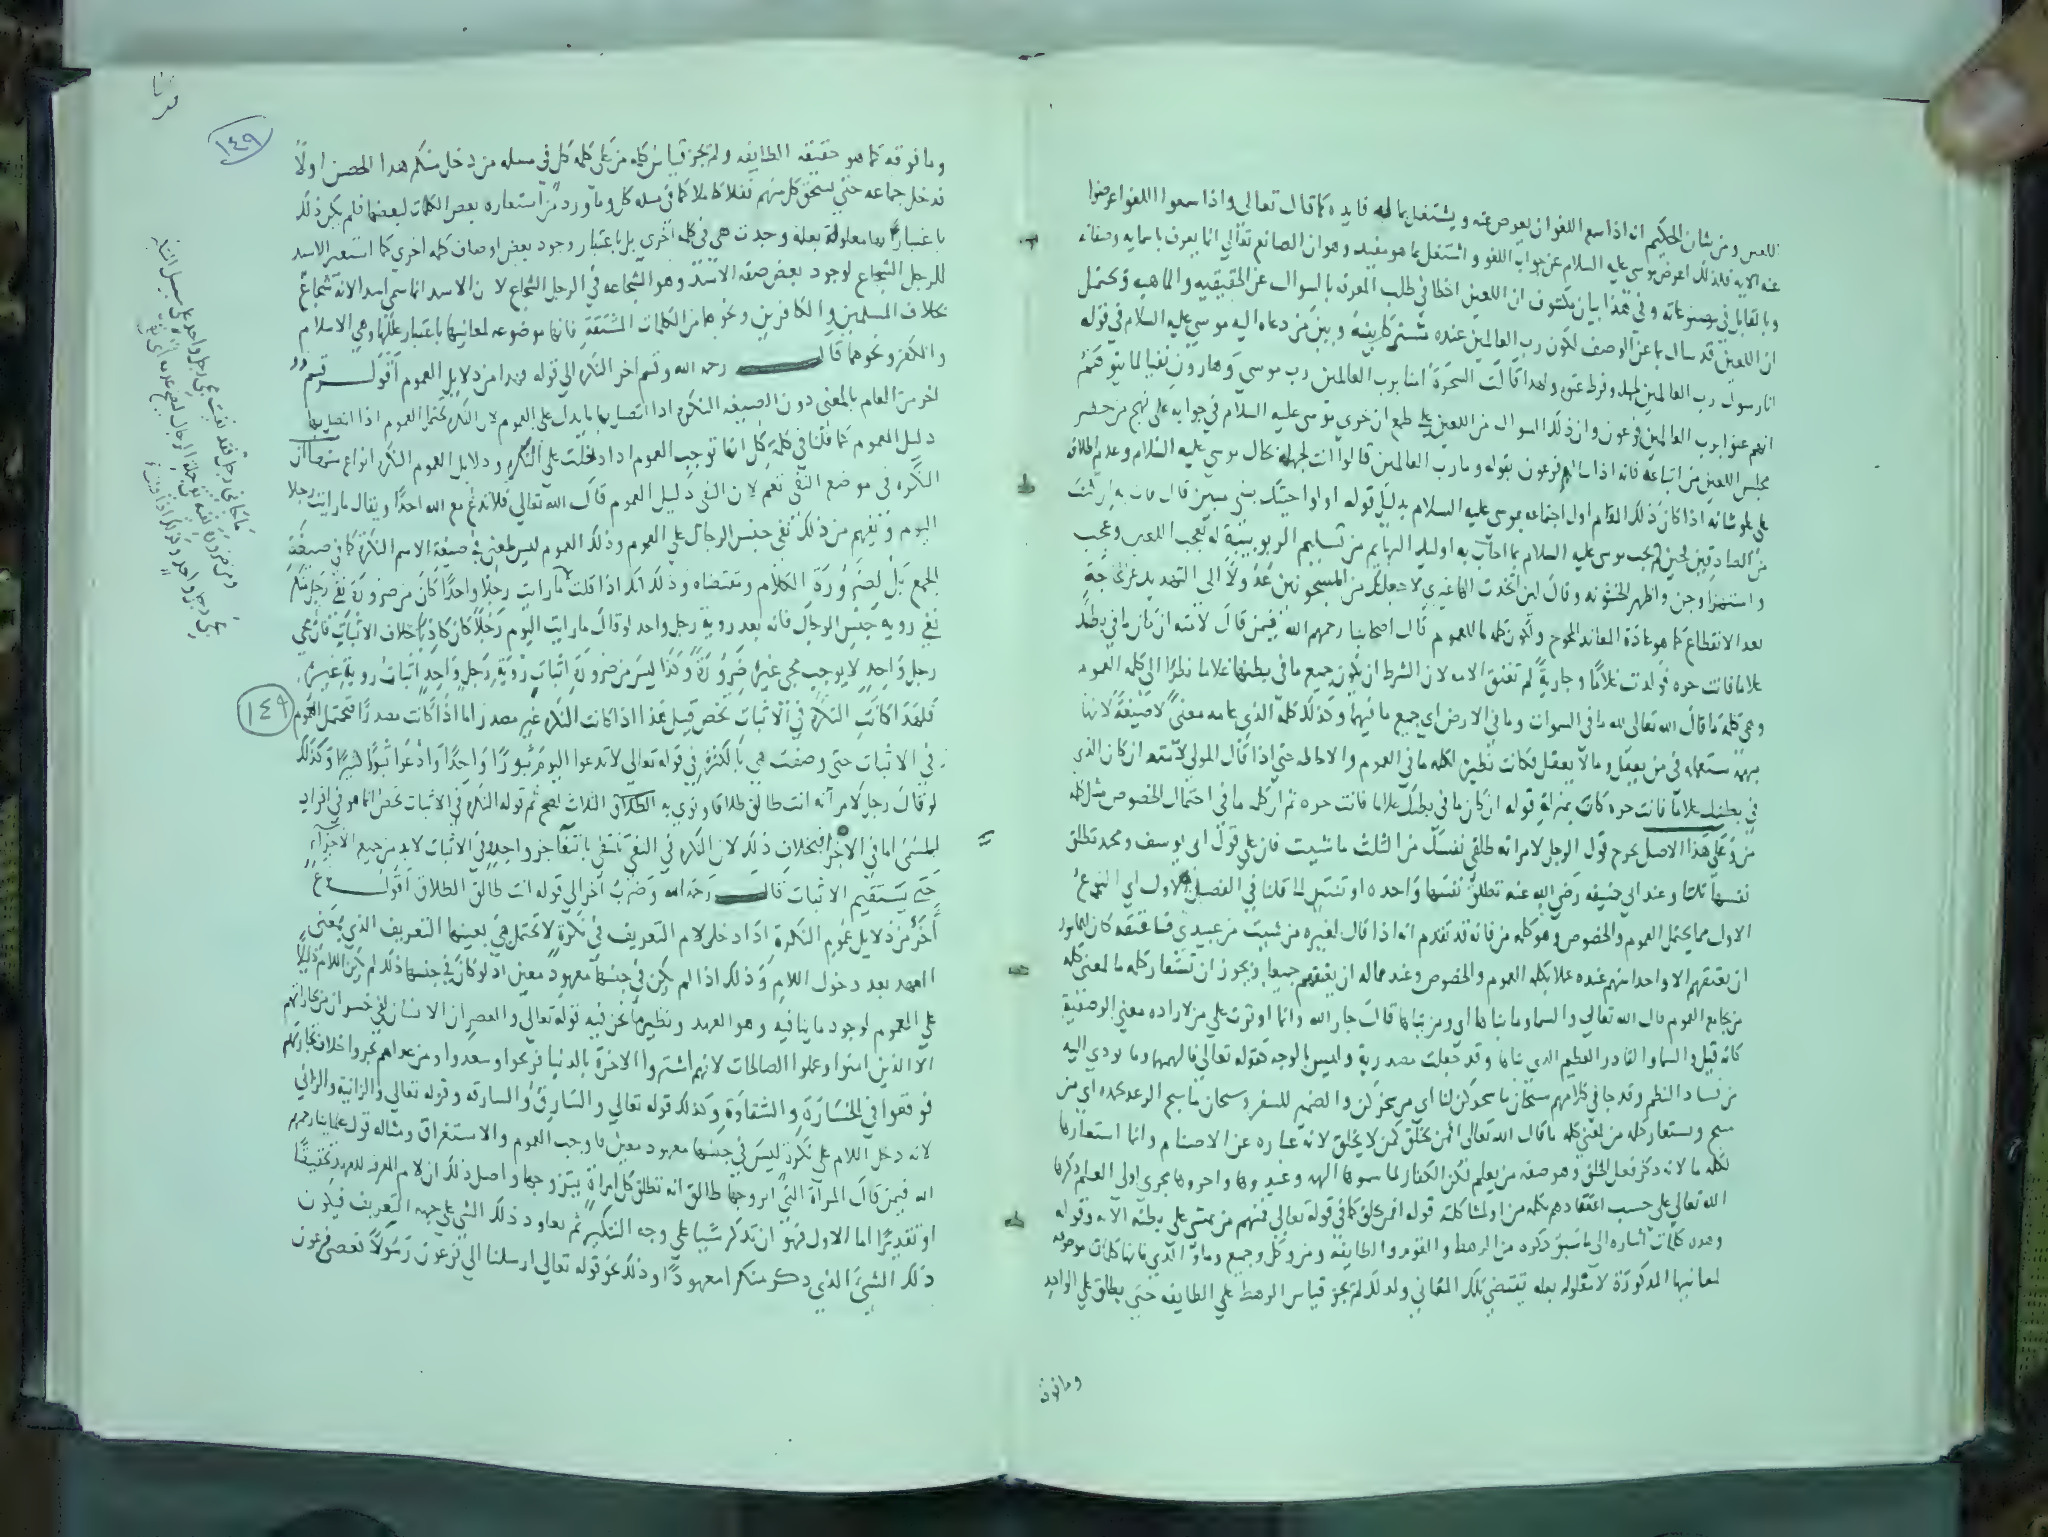 اللعين ومن شان الحكيم انه اذا سمع اللغو ان يعرض عنه ويشتغل بما له فايده كما قال تعالى واذا سمعوا اللغو اعرضوا
عنه الايه فلذلك اعرض موسي عليه السلام عن جواب اللغو واشتغل بما هو مفيد وهو ان الصانع تعالي انما يعرف باسمايه وصفاته
وفي هذا بيان مكشوف ان اللعين اخطا في طلب المعرفه بالسوال عن الحقيقيه والماهيه ويحتمل
ان اللعين قد سال بما عن الوصف لكون رب العالمين عنده مشتركا بينه وبين من دعاه اليه موسي عليه السلام في قوله
انا رسول رب العالمين لجهله وفرط عتوه ولهذا قالت السحرة امنا برب العالمين رب موسي وهارون نفيا لما يتوهم
انهم عنوا برب العالمين فرعون وان ذلك السوال من اللعين علي طمع ان يجري موسي عليه السلام في جوابه على نهج من حضر
مجلس اللعين من اتباعه فانه اذا سالهم فرعون بقوله وما رب العالمين قالوا انت لجهله بحال موسي عليه السلام وعدم اطلاعه
على علو شانه اذا كان ذلك المقام اول اجتماعه بموسى عليه السلام بدليل قوله اولو جيتك بشي مبين قال فات به ان كنت
من الصادقين فحين لم يجب موسى عليه السلام بما اجاب به اوليك البهايم من تسليم الربوبية له تعجب اللعين وعجب
واستهزا وجن واظهر الخشونه وقال لين اتخذت الها غيري لاجعلنك من المسجونين عدولا الى التهديد عن المحاجة
بعد الانقطاع كما هو عادة المعاند المحجوج ولكون كلمه ما للعموم قال اصحابنا رحمهم الله فيمن قال لامته ان كان ما في بطنك
غلاما فانت حره فولدت غلاما وجارية لم تعتق الامه لان الشرط ان يكون جميع ما في بطنها غلاما نظرا الى كلمه العموم
وهي كلمة ما قال الله تعالى لله ما في السموات وما في الارض اي جميع ما فيهما وكذلك كلمة الذي عامه معنى لا صيغة لانها
مبهمة مستعمله في من يعقل وما لا يعقل فكانت نظيرة لكلمه ما في العموم والاحاطه حتى اذا قال المولى لامته ان كان الذي
في بطنك غلاما فانت حره كان بمنزلة قوله ان كان ما في بطنك غلاما فانت حره ثم ان كلمه ما في احتمال الخصوص مثل كلمه
من وعلي هذا الاصل يخرج قول الرجل لامراته طلقي نفسك من الثلث ما شيت فان على قول ابي يوسف ومحمد تطلق
نفسها ثلثا وعند ابي حنيفه رضي الله عنه تطلق نفسها واحده او ثنتين لما قلنا في الفصل الاول اي النوع
الاول مما يحتمل العموم والخصوص وهو كلمه من فانه قد تقدم انه اذا قال لغيره من شيت من عبيدي فاعتقه كان للمامور
ان يعتقهم الا واحدا منهم عنده عملا بكلمه العموم والخصوص وعندهما له ان يعتقهم جميعا ويجوز ان تستعار كلمه ما لمعنى كلمه
من بجامع العموم قال الله تعالى والسما وما بناها اي ومن بناها قال جار الله وانما اوثرت على من لارادة معني الوصفية
كانه قيل والسما والقادر العظيم الذي بناها وقد جعلت مصدرية وليس بالوجه كقوله تعالى فالهمها وما يودي اليه
من فساد النظم وقد جا في كلامهم سبحان ما سخركن لنا اي من سخركن والضمير للسفر وسبحان ما سبح الرعد بحمده اي من
سبح ويستعار كلمه من لمعنى كلمه ما قال الله تعالى افمن يخلق كمن لا يخلق لانه عباره عن الاصنام وانما استعارها
لكلمه ما لانه ذكر فعل الخلق وهو صفه من يعلم لكن الكفار لما سموها الهه وعبدوها واجروها مجرى اولى العلم ذكرها
الله تعالى على حسب اعتقادهم بكلمه من او لمشاكلته قوله افمن يخلق كما في قوله تعالى فمنهم من يمشى على بطنه الآيه وقوله
وهذه كلمات اشاره الى ما سبق ذكره من الرهط والقوم والطايفة ومن وكل وجميع وما والذي فانها كلمات موضوعه
لمعانيها المذكورة لا معلوله بعله تقتضي تلك المعاني ولذلك لم يجز قياس الرهط على الطايفه حتى يطلق على الواحد
وما فوقه
١٤٩
وما فوقه كما هو حقيقه الطايفه ولم يجز قياس كلمه من على كلمه كل في مسله من دخل منكم هذا الحصن اولا
فدخل جماعه حتى يستحق كل منهم نفلا كاملا كما في مسله كل وما ورد من استعاره بعض الكلمات لبعضها فلم يكن ذلك
باعتبار انها معلولة بعله وجدت هي في كلمه اخرى بل باعتبار وجود بعض اوصاف كلمه اخري كما استعير الاسد
للرجل الشجاع لوجود بعض صفه الاسد وهو الشجاعه في الرجل الشجاع لا ن الاسد انما سمي اسدا لانه شجاع
بخلاف المسلمين والكافرين ونحوها من الكلمات المشتقة فانها موضوعه لمعانيها باعتبار عللها وهي الاسلام
والكفر ونحوهما قال رحمه الله وقسم اخر النكره الي قوله وهذا من دلايل العموم اقول قسم
اخر من العام بالمعنى دون الصيغه النكره اذا اتصل بها ما يدل على العموم لان النكره تحتمل العموم اذا اتصل بها
دليل العموم كما قلنا في كلمة كل انها توجب العموم اذا دخلت علي النكره ودلايل العموم النكره انواع منها ان
النكره في موضع النفي تعم لان النفي دليل العموم قال الله تعالي فلا تدع مع الله احدا ويقال ما رايت رجلا
اليوم ويفهم من ذلك نفي جنس الرجال علي العموم وذلك العموم ليس لمعنى في صيغة الاسم النكرة كما في صيغة
الجمع بل لضرورة الكلام ومقتضاه وذلك انك اذا قلت ما رايت رجلا واحدا كان من ضرورة نفي رجل منكر
نفي روية جنس الرجال فانه بعد روية رجل واحد لو قال ما رايت اليوم رجلا كان كاذبا بخلاف الاثبات فان مجي
رجل واحد لا يوجب مجي غيره ضرورة وكذا ليس من ضرورة اثبات روية رجل واحد اثبات روية غيره
فلهذا كانت النكره في الاثبات تخص قيل هذا اذا كانت النكره غير مصدر اما اذا كانت مصدرا فتحتمل العموم
١٤٩
في الاثبات حتى وصفت هي بالكثرة في قوله تعالى لا تدعوا اليوم ثبورا واحدا وادعوا ثبورا كثيرا وكذلك
لو قال رجل لامرآته انت طالق طلاقا ونوى به الطلاق الثلاث يصح ثم قوله النكره في الاثبات تخص انما هو في افراد
المسمى اما في الاجزا فبخلاف ذلك لان النكره في النفي تنتفي بانتفآ جزو واحد وفي الاثبات لابد من جميع الاجزآء
حتى يستقيم الاثبات قال رحمه الله وضرب اخر الي قوله انت طالق الطلاق اقول نوع
آخر من دلايل عموم النكرة اذا دخل لام التعريف في نكرة لا تحتمل هي بعينها التعريف الذي بمعنى
العهد بعد دخول اللام وذلك اذا لم يكن في جنسها معهود معين اذ لو كان في جنسها ذلك لم يكن اللام دليلا
على العموم لوجود ما ينافيه وهو العهد ونظير ما نحن فيه قوله تعالى والعصر ان الانسان لفي خسر
الا الذين امنوا وعملوا الصالحات لانهم اشتروا الاخرة بالدنيا فربحوا وسعدوا ومن عداهم تجروا خلاف تجارتهم
فوقعوا في الخسارة والشقاوة وكذلك قوله تعالي والسارق والسارقه وقوله تعالي والزانية والزاني
لانه دخل اللام على نكرة ليس في جنسها معهود معين فاوجب العموم والاستغراق ومثاله قول علمائنا رحمهم
الله فيمن قال المرآة التي اتزوجها طالق انه تطلق كل امراة يتزوجها واصل ذلك ان لام المعرفه للعهد تحقيقا
او تقديرا اما الاول فهو ان تذكر شيا علي وجه التنكير ثم تعاود ذلك الشي علي جهه التعريف فيكون
ذلك الشيء الذي ذكر منكرا معهودا وذلك نحو قوله تعالي ارسلنا الي فرعون رسولا فعصى فرعون